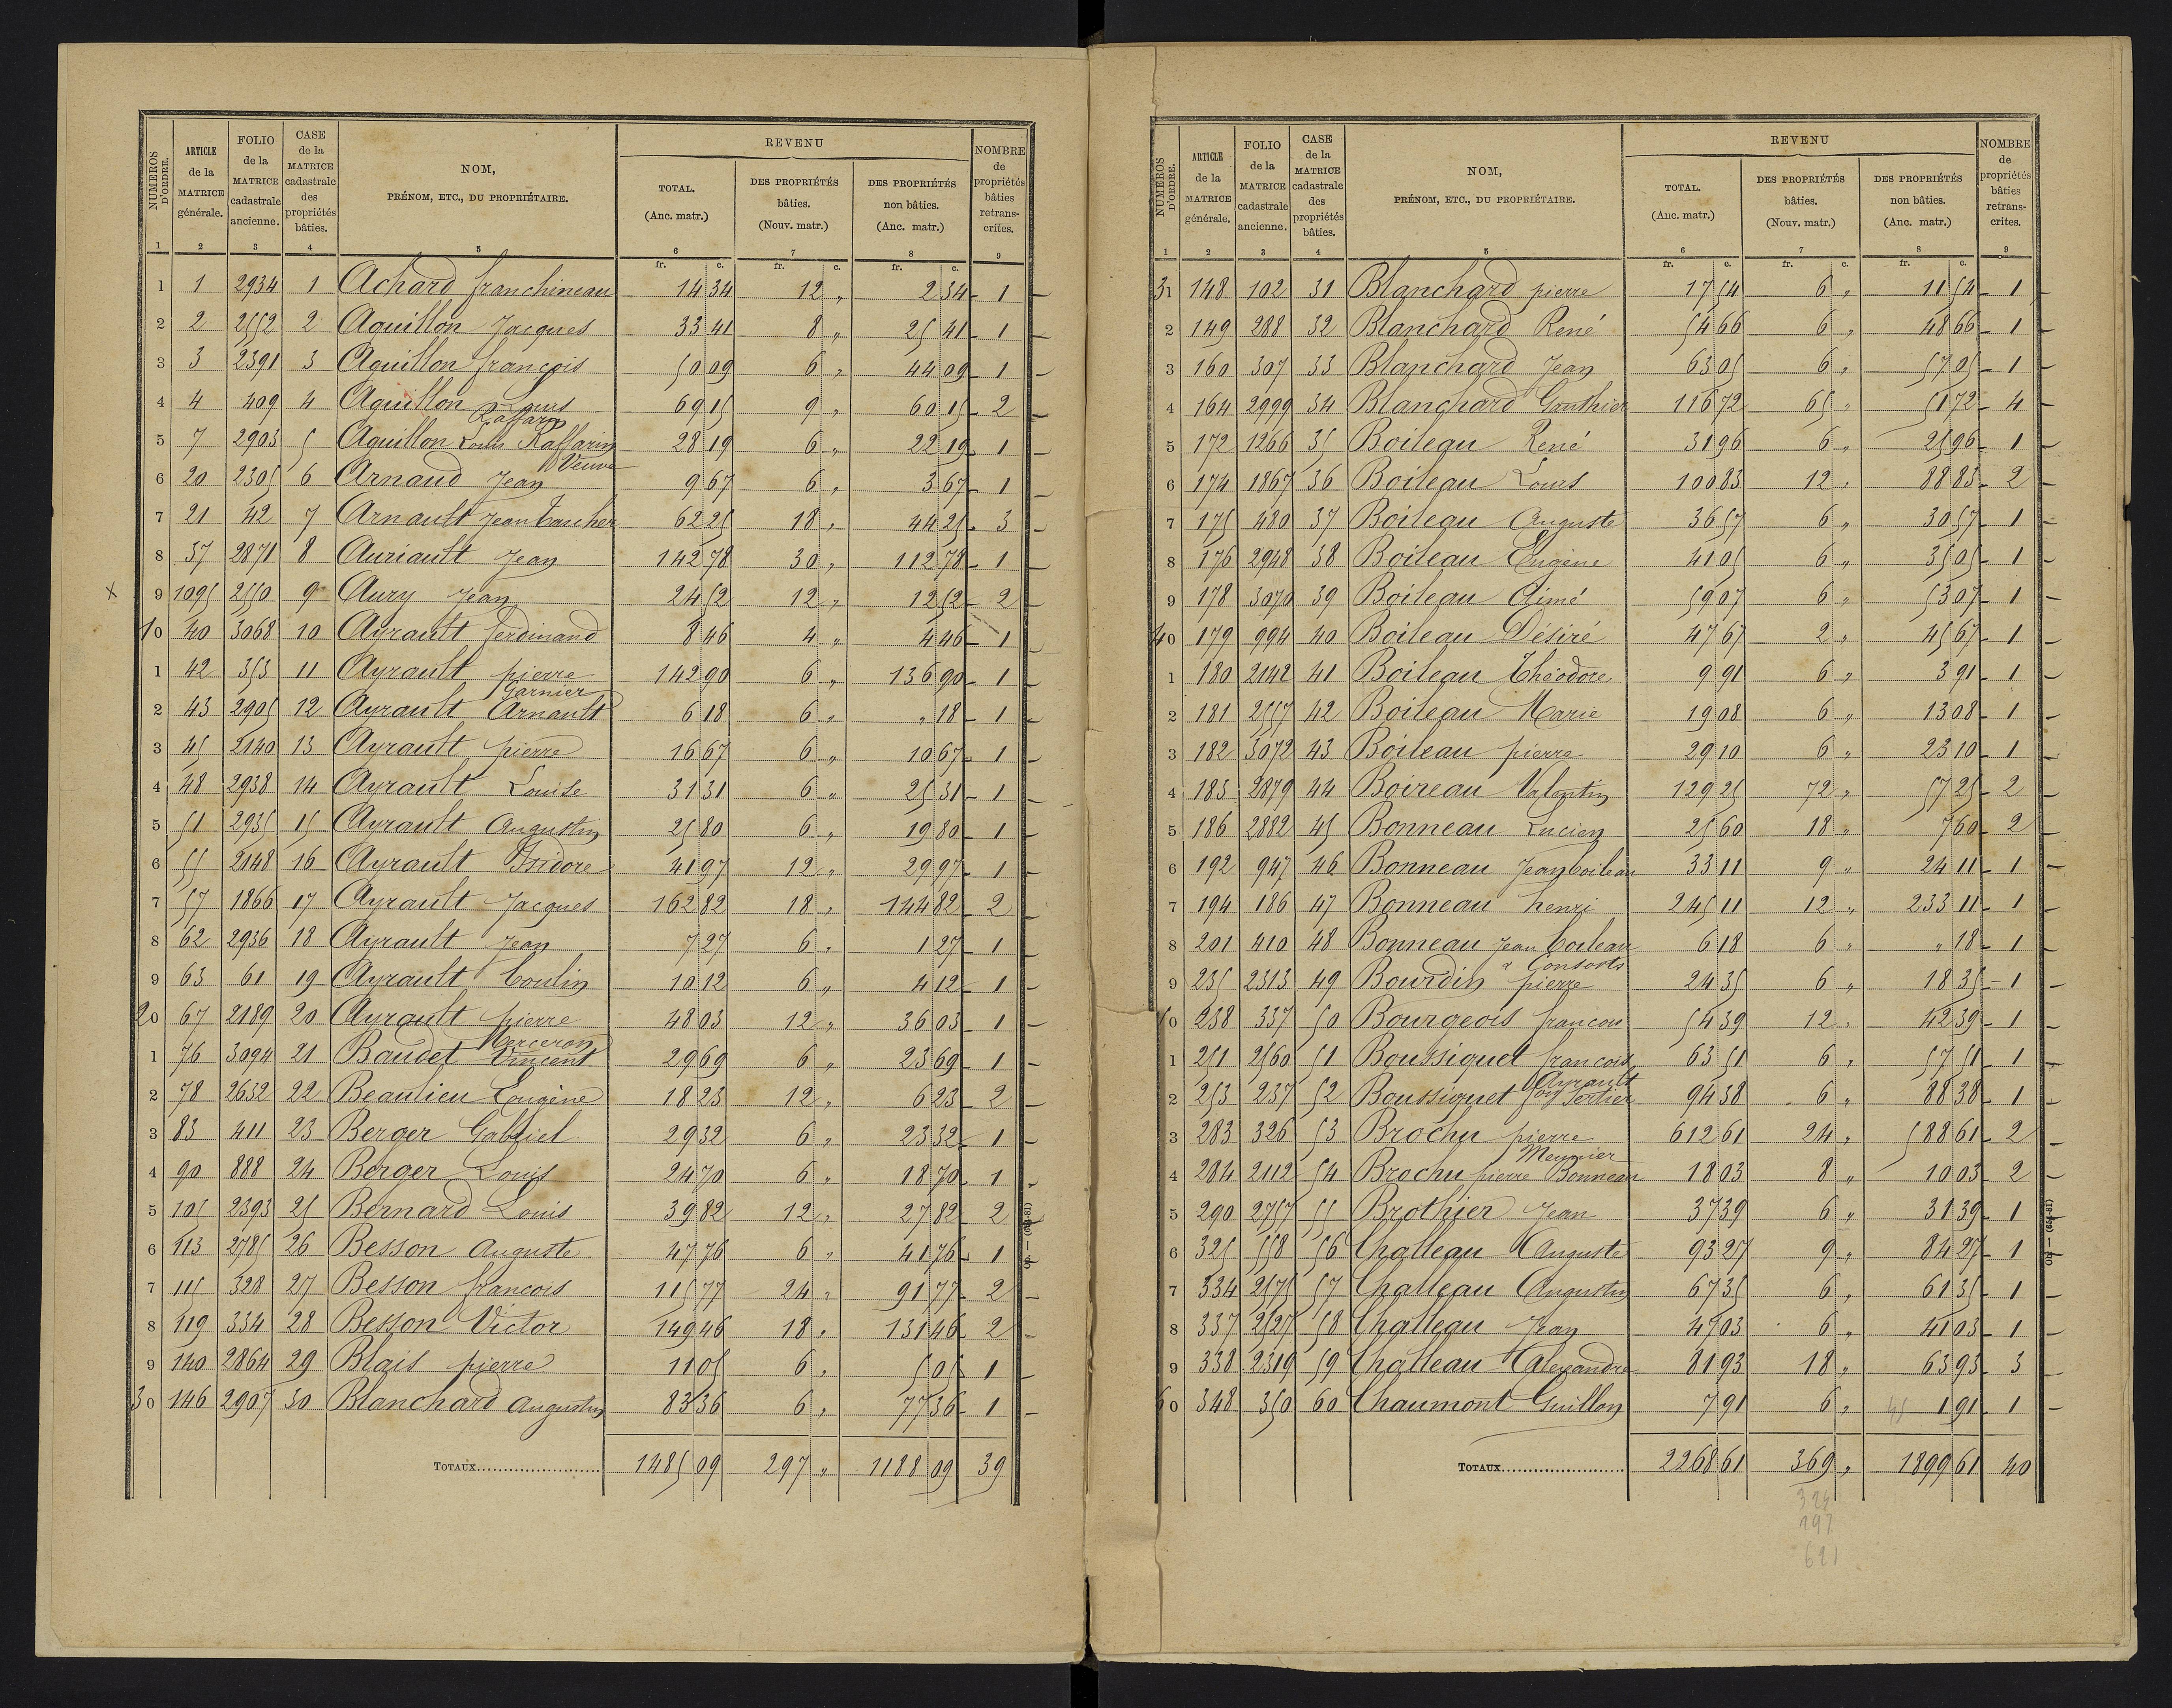 NUMÉROS D'ORDRE. | ARTICLE de la MATRICE générale. | FOLIO de la MATRICE cadastrale ancienne. | CASE de la MATRICE cadastrale des propriétés bâties. | NOM, PRÉNOM, ETC., DU PROPRIÉTAIRE. | REVENU TOTAL. (Anc. matr.) | DES PROPRIÉTÉS bâties. (Nouv. matr.) | DES PROPRIÉTÉS non bâties. (Anc. matr.) | NOMBRE de propriétés bâties retranscrites.
1 | 2 | 3 | 4 | 5 | 6 | 7 | 8 | 9
fr. c. | fr. c. | fr. c.
1 | 1 | 2934 | 1 | Achard franchineau | 14 34 | 12 „ | 2 34 | 1
2 | 2 | 2552 | 2 | Aquillon Jacques | 33 41 | 8 „ | 25 41 | 1
3 | 3 | 2391 | 3 | Aquillon françois | 50 09 | 6 „ | 44 09 | 1
4 | 4 | 409 | 4 | Aquillon Louis Raffarin | 69 15 | 9 „ | 60 15 | 2
5 | 7 | 2903 | 5 | Aquillon Louis Raffarin Veuve | 28 19 | 6 „ | 22 19 | 1
6 | 20 | 2305 | 6 | Arnaud Jean | 9 67 | 6 „ | 3 67 | 1
7 | 21 | 42 | 7 | Arnault Jean Faucher | 62 25 | 18 „ | 44 25 | 3
8 | 37 | 2871 | 8 | Auriault Jean | 142 78 | 30 „ | 112 78 | 1
x 9 | 1095 | 2550 | 9 | Aury Jean | 24 52 | 12 „ | 12 52 | 2
10 | 40 | 3068 | 10 | Ayrault ferdinand | 8 46 | 4 „ | 4 46 | 1
1 | 42 | 353 | 11 | Ayrault pierre | 142 90 | 6 „ | 136 90 | 1
2 | 43 | 2905 | 12 | Ayrault Garnier Arnault | 6 18 | 6 „ | „ 18 | 1
3 | 45 | 2140 | 13 | Ayrault pierre | 16 67 | 6 „ | 10 67 | 1
4 | 48 | 2938 | 14 | Ayrault Louise | 31 31 | 6 „ | 25 31 | 1
5 | 51 | 2935 | 15 | Ayrault Augustin | 25 80 | 6 „ | 19 80 | 1
6 | 55 | 2148 | 16 | Ayrault Isidore | 41 97 | 12 „ | 29 97 | 1
7 | 57 | 1866 | 17 | Ayrault Jacques | 162 82 | 18 „ | 144 82 | 2
8 | 62 | 2936 | 18 | Ayrault Jean | 7 27 | 6 „ | 1 27 | 1
9 | 63 | 61 | 19 | Ayrault Coulin | 10 12 | 6 „ | 4 12 | 1
20 | 67 | 2189 | 20 | Ayrault pierre | 48 03 | 12 „ | 36 03 | 1
1 | 76 | 3094 | 21 | Baudet Merceron Vincent | 29 69 | 6 „ | 23 69 | 1
2 | 78 | 2632 | 22 | Beaulieu Eugène | 18 23 | 12 „ | 6 23 | 2
3 | 83 | 411 | 23 | Berger Gabriel | 29 32 | 6 „ | 23 32 | 1
4 | 90 | 888 | 24 | Berger Louis | 24 70 | 6 „ | 18 70 | 1
5 | 105 | 2393 | 25 | Bernard Louis | 39 82 | 12 „ | 27 82 | 2
6 | 113 | 2785 | 26 | Besson Auguste | 47 76 | 6 „ | 41 76 | 1
7 | 115 | 328 | 27 | Besson francois | 115 77 | 24 „ | 91 77 | 2
8 | 119 | 334 | 28 | Besson Victor | 149 46 | 18 „ | 131 46 | 2
9 | 140 | 2864 | 29 | Blais pierre | 11 05 | 6 „ | 5 05 | 1
30 | 146 | 2907 | 30 | Blanchard Augustin | 83 36 | 6 „ | 77 36 | 1
TOTAUX | 1485 09 | 297 „ | 1188 09 | 39
NUMÉROS D'ORDRE. | ARTICLE de la MATRICE générale. | FOLIO de la MATRICE cadastrale ancienne. | CASE de la MATRICE cadastrale des propriétés bâties. | NOM, PRÉNOM, ETC., DU PROPRIÉTAIRE. | REVENU TOTAL. (Anc. matr.) | DES PROPRIÉTÉS bâties. (Nouv. matr.) | DES PROPRIÉTÉS non bâties. (Anc. matr.) | NOMBRE de propriétés bâties retranscrites.
1 | 2 | 3 | 4 | 5 | 6 | 7 | 8 | 9
fr. c. | fr. c. | fr. c.
31 | 148 | 102 | 31 | Blanchard pierre | 17 54 | 6 „ | 11 54 | 1
2 | 149 | 288 | 32 | Blanchard René | 54 66 | 6 „ | 48 66 | 1
3 | 160 | 307 | 33 | Blanchard Jean | 63 05 | 6 „ | 57 05 | 1
4 | 164 | 2999 | 34 | Blanchard Gonthier | 116 72 | 65 „ | 51 72 | 4
5 | 172 | 1266 | 35 | Boileau René | 31 96 | 6 „ | 25 96 | 1
6 | 174 | 1867 | 36 | Boileau Louis | 100 83 | 12 „ | 88 83 | 2
7 | 175 | 480 | 37 | Boileau Auguste | 36 57 | 6 „ | 30 57 | 1
8 | 176 | 2948 | 38 | Boileau Eugène | 41 05 | 6 „ | 35 05 | 1
9 | 178 | 3070 | 39 | Boileau Aimé | 59 07 | 6 „ | 53 07 | 1
40 | 179 | 994 | 40 | Boileau Désiré | 47 67 | 2 „ | 45 67 | 1
1 | 180 | 2142 | 41 | Boileau Théodore | 9 91 | 6 „ | 3 91 | 1
2 | 181 | 2557 | 42 | Boileau Marie | 19 08 | 6 „ | 13 08 | 1
3 | 182 | 3072 | 43 | Boileau pierre | 29 10 | 6 „ | 23 10 | 1
4 | 183 | 2879 | 44 | Boireau Valentin | 129 25 | 72 „ | 57 25 | 2
5 | 186 | 2882 | 45 | Bonneau Lucien | 25 60 | 18 „ | 7 60 | 2
6 | 192 | 947 | 46 | Bonneau Jean boileau | 33 11 | 9 „ | 24 11 | 1
7 | 194 | 186 | 47 | Bonneau henri | 245 11 | 12 „ | 233 11 | 1
8 | 201 | 410 | 48 | Bonneau Jean boileau & Consorts | 6 18 | 6 „ | „ 18 | 1
9 | 235 | 2313 | 49 | Bourdin pierre | 24 35 | 6 „ | 18 35 | 1
50 | 238 | 337 | 50 | Bourgeois francois | 54 39 | 12 „ | 42 39 | 1
1 | 251 | 2560 | 51 | Boussiquet francois | 63 51 | 6 „ | 57 51 | 1
2 | 253 | 237 | 52 | Boussiquet Ayrault | 94 38 | 6 „ | 88 38 | 1
3 | 283 | 326 | 53 | Brochu pierre | 612 61 | 24 „ | 588 61 | 2
4 | 284 | 2112 | 54 | Brochu pierre Meunier Bonneau | 18 03 | 8 „ | 10 03 | 2
5 | 290 | 2757 | 55 | Brothier Jean | 37 39 | 6 „ | 31 39 | 1
6 | 325 | 558 | 56 | Challeau Auguste | 93 27 | 9 „ | 84 27 | 1
7 | 334 | 2575 | 57 | Challeau Augustin | 67 35 | 6 „ | 61 35 | 1
8 | 337 | 2127 | 58 | Challeau Jean | 47 03 | 6 „ | 41 03 | 1
9 | 338 | 2319 | 59 | Challeau Alexandre | 81 93 | 18 „ | 63 93 | 3
60 | 348 | 350 | 60 | Chaumont Guillon | 7 91 | 6 „ | 1 91 | 1
TOTAUX | 2268 61 | 369 „ | 1899 61 | 40
324
297
621